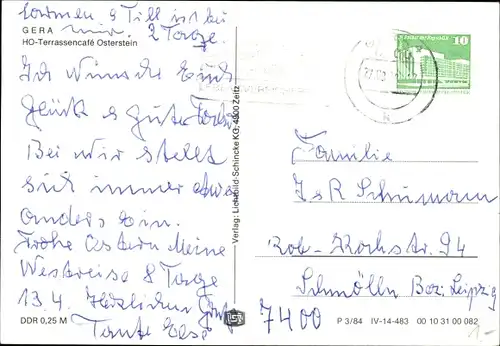 kommen, 9 Till ist bei
GERA
mir. 2 Tage.
HO-Terrassencafé Osterstein
Ich wünsche Euch
Glück & Gute Fahrt
Bei mir stellt
sich immer etwas
anders ein.
Frohe Ostern Meine
Westreise 8 Tage
13.4. Herzlichen Gruß
Tante Else
DDR 0,25 M
Verlag: Lichtbild-Schincke KG, 4900 Zeitz
10
Familie
J & R Schumann
Rob.-Kochstr. 94
Schmölln Bez. Leipzig
7400
P 3/84 IV-14-483 00 10 31 00 082